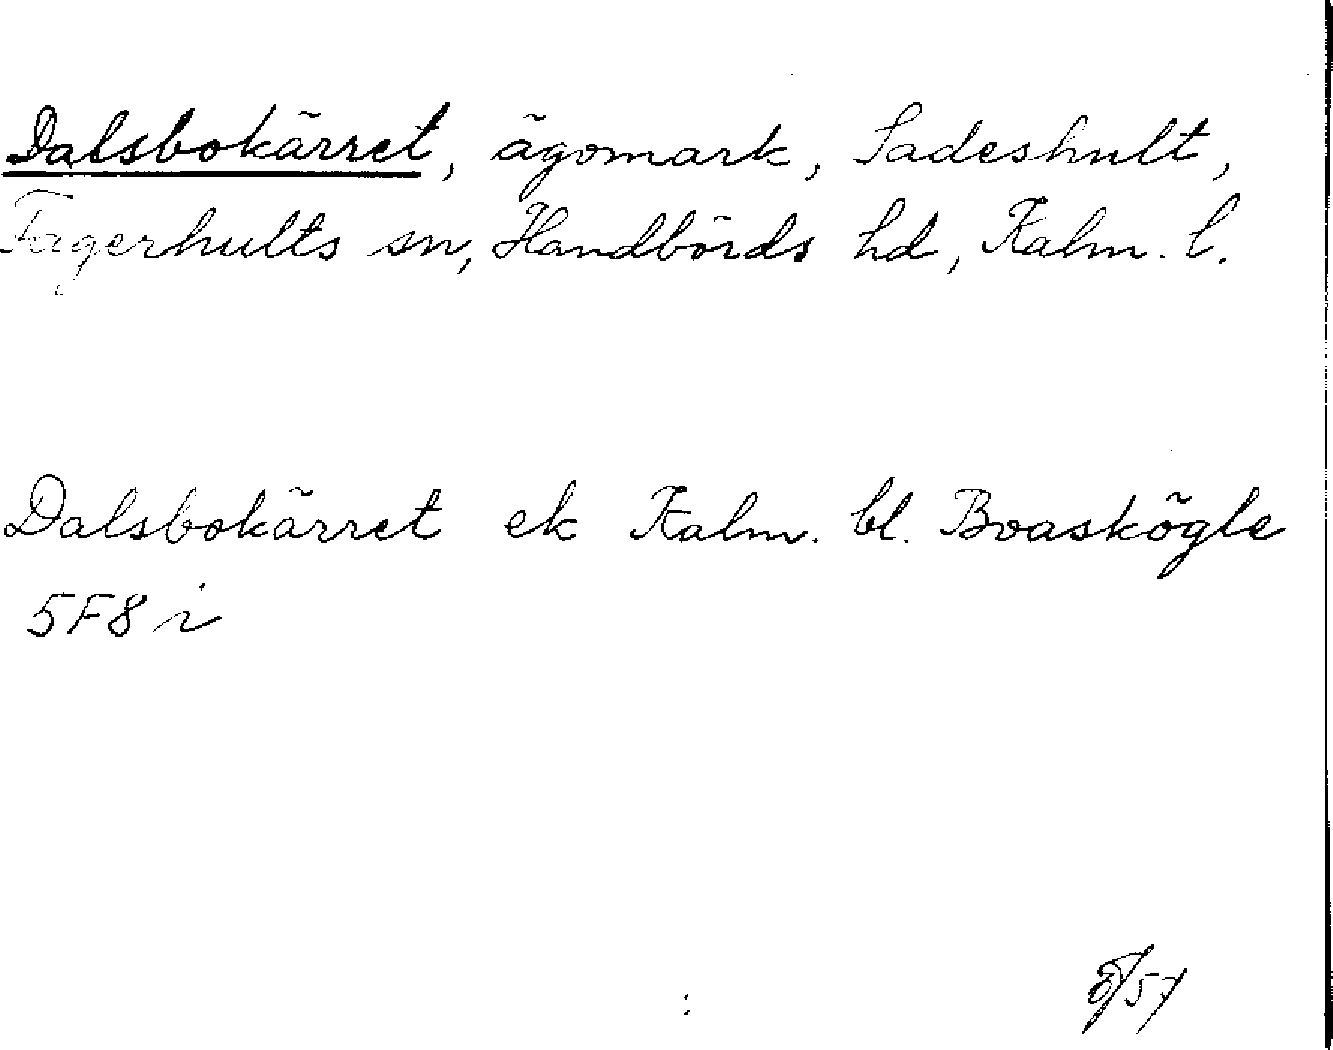 Dalsbokärret, ägomark, Sadeshult,
Fagerhults sn, Handbörds hd, Kalm. l.
Dalsbokärret ek Kalm. bl. Boaskögle
5F8 i